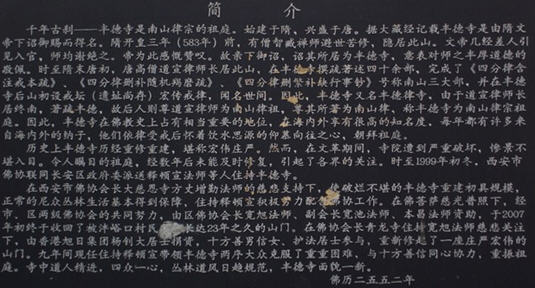 简 介
千年古刹——丰德寺是南山律宗的祖庭。始建于隋、兴盛于唐。据大藏经记载丰德寺是由隋文
帝下诏御赐而得名。隋开皇三年（583）年前，有僧智藏禅师避世苦修，隐居此山。文帝几经差人引
见入宫。师均谢绝之。帝为此感慨赞叹。故亲下御诏，诏其所居为丰德寺，意表对师之丰厚道德的
敬佩。时至隋末唐初，唐高僧道宣律师长居此山，在丰德寺撰疏著述四十余部，完成了《四分律含
注戒本疏》、《四分律删补随机羯磨疏》、《四分律删繁补缺行事钞》号称南山三大部，并在丰德
寺后山初设戒坛（遗址尚存）宏传戒律，闻名世间。因此，丰德寺又名丰德律寺。由于道宣律师长
居终南，著疏丰德，故后人则尊道宣律师为南山律祖，尊其所著为南山律，称丰德寺为南山律宗祖
庭。因此，丰德寺在佛教史上占有相当重要的地位，在海内外享有很高的知名度，每年都有许多来
自海内外的衲子，他们依律受戒后怀着饮水思源的仰慕向往之心，朝拜祖庭。
历史上丰德寺历经重修重建，堪称宏伟庄严。然而，在文革期间，寺院遭到严重破坏，惨景不
堪入目。令人瞩目的祖庭，经数年后未能及时修复，引起了各界的关注。时至1999年初冬。西安市
佛协联同长安区政府委派送释领宣法师等人住持丰德寺。
在西安市佛协会长大慈恩寺方丈增勤法师的慈悲支持下，使破烂不堪的丰德寺重建初具规模，
正常的尼众丛林生活基本得到保障，住持释领宣积极努力配 佛协工作。在佛菩萨慈光普照下，经
市、区两级佛协会的共同努力，由区佛协会长宽旭法师、副会长宽池法师，本昌法师资助，于2007
年初终于收回了被沣峪口村民 长达23年之久的山门。在佛协会长青龙寺住持宽旭法师慈悲关注
下，由香港旭日集团杨钊大居士捐资，十方善男信女、护法居士参与，重新修起了一座庄严宏伟的
山门。九年间现任住持释领宣带领丰德寺两序大众克服了重重困难，与十方善信同心协力，重振祖
庭。寺中道人精进，四众一心，丛林道风日趋规范，丰德寺面貌一新。
佛历二五五二年